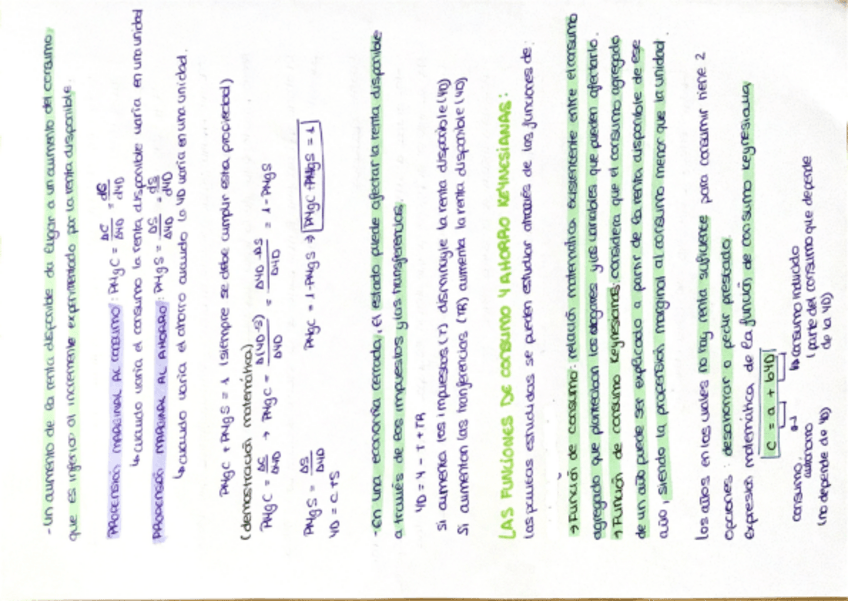 - Un aumento de la renta disponible da lugar a un aumento del consumo,
que es inferior al incremento experimentado por la renta disponible.
PROPENSIÓN MARGINAL AL CONSUMO: PMgC = ΔC/ΔYD = dS/dYD
↳ cuando varia el consumo la renta disponible varia en una unidad
PROPENSIÓN MARGINAL AL AHORRO: PMgS = ΔS/ΔYD = dS/dYD
↳ cuando varia el ahorro cuando la YD varia en una unidad.
PMgC + PMgS = 1 (siempre se debe cumplir esta propiedad)
(demostración matemática)
PMgC = ΔS/ΔYD → PMgC = Δ(YD-S)/ΔYD = ΔYD-ΔS/ΔYD = 1-PMgS
PMgS = ΔS/ΔYD PMgC = 1-PMgS ⇒ PMgC+PMgS = 1
YD = C+S
- En una economía cerrada, el estado puede afectar la renta disponible
a través de los impuestos y las transferencias.
YD = Y - T + TR
Si aumenta los impuestos (T) disminuye la renta disponible (YD)
Si aumentan las tranferencias (TR) aumenta la renta disponible (YD)
LAS FUNCIONES DE CONSUMO Y AHORRO KEYNESIANAS:
las pautas estudiadas se pueden estudiar através de las funciones de:
→ Función de consumo: relación matemática existente entre el consumo
agregado que planteaban los hogares y las variables que pueden afectarlo.
→ Función de consumo keynesiana: considera que el consumo agregado
de un año puede ser explicado a partir de la renta disponible de ese
año, siendo la propensión marginal al consumo menor que la unidad.
Los años en los cuales no hay renta suficiente para consumir tiene 2
opciones: desahorrar o pedir prestado.
Expresión matemática de la función de consumo keynesiana
C = a + bYD
consumo autónomo (no depende de YD)
↳ consumo inducido (parte del consumo que depende de la YD)